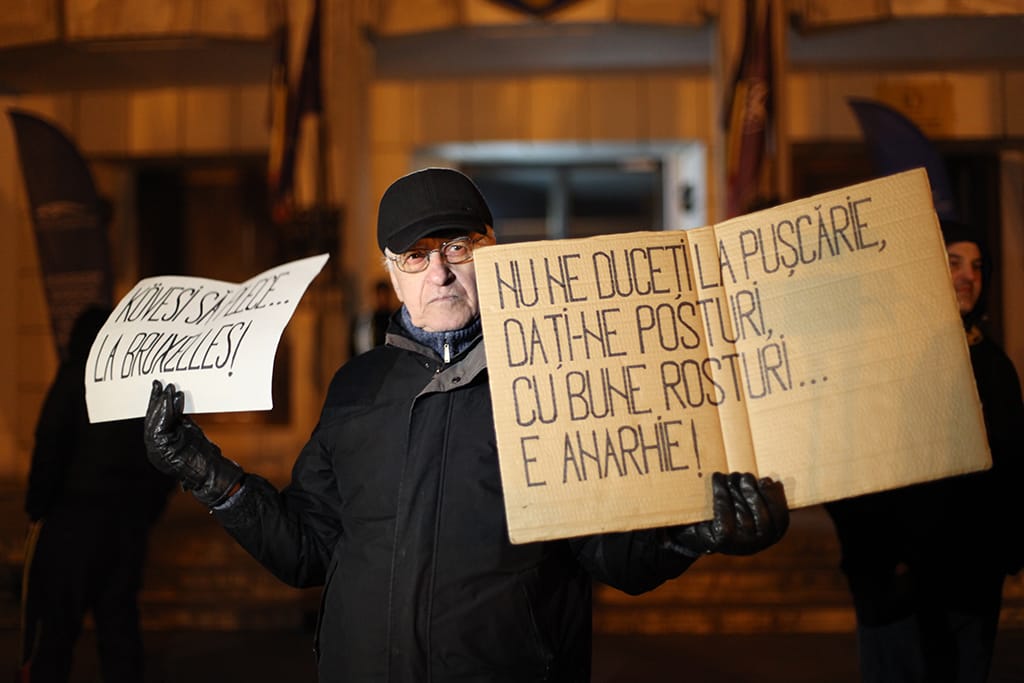 KÖVESI SĂ PLECE...
LA BRUXELLES!
NU NE DUCEȚI LA PUȘCĂRIE,
DAȚI-NE POSTURI,
CU BUNE ROSTURI...
E ANARHIE!